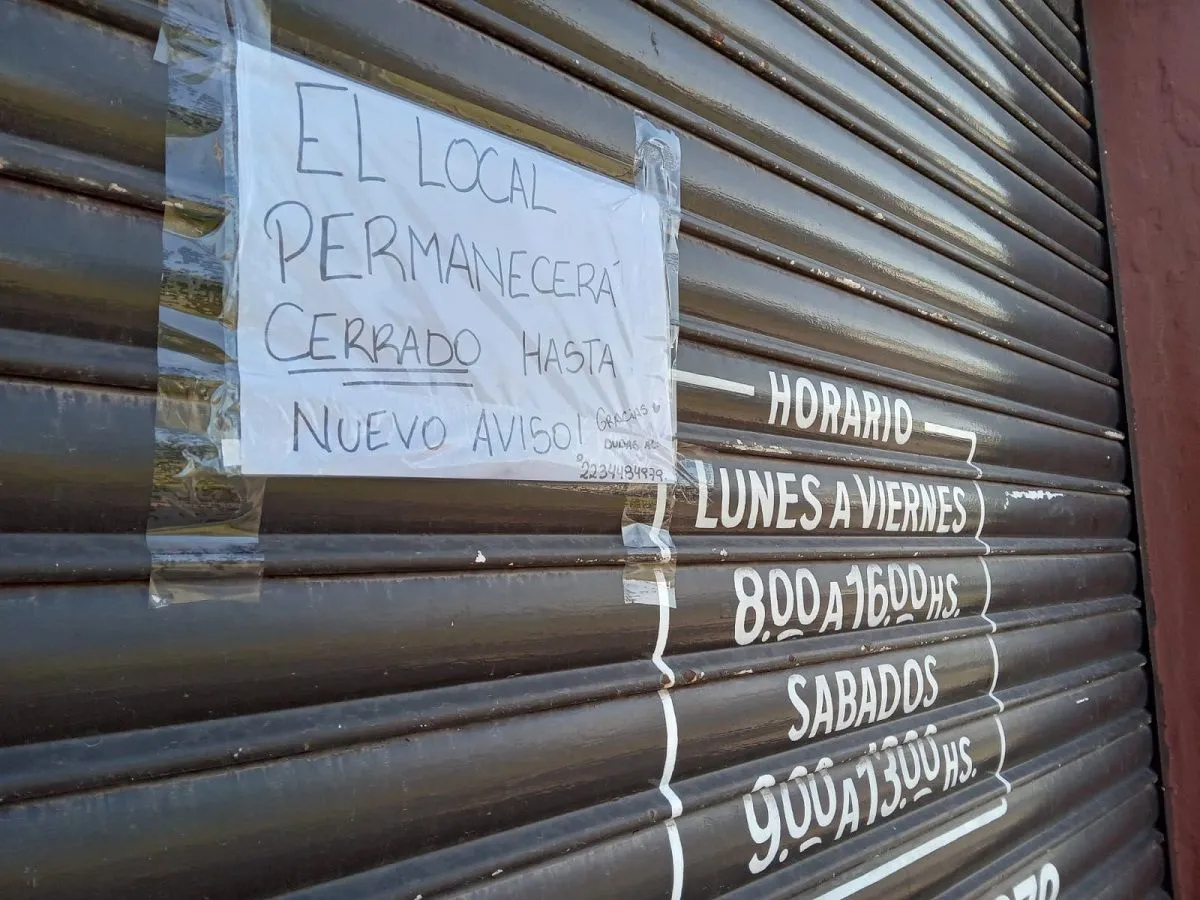 EL LOCAL
PERMANECERÁ
CERRADO HASTA
NUEVO AVISO!
GRACIAS
DUDAS AL:
HORARIO
LUNES A VIERNES
8.00 A 16.00 HS.
SABADOS
9.00 A 13.00 HS.